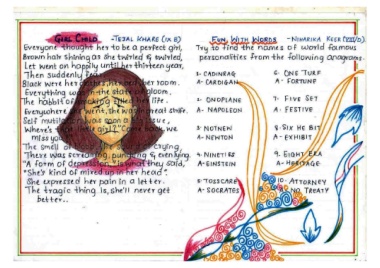 GIRL CHILD - TEJAL KHARE (IX B)
Everyone thought her to be a perfect girl,
Brown hair shining as she twirled & swirled,
Let went on happily until her thirteen year,
Then suddenly
Black were her room.
Everything was in the state of gloom.
The habit of life.
Everywhere she went, she shift.
Self was soon a issue,
Where's little girl?" we
miss you
The smell of crying,
There was screaming,
"A form of depression," is what they said,
"She's kind of mixed up in her head".
She expressed her pain in a letter.
The tragic thing is, she'll never get
better..
FUN WITH WORDS - NIHARIKA KEER (VIII D)
Try to find the names of world famous
personalities from the following anagrams.
1- CADINRAG
A- CARDIGAN
2- ONOPLANE
A- NAPOLEON
3- NOTNEN
A- NEWTON
4- NINETIE
A- EINSTEIN
5- TOSSCARE
A- SOCRATES
6- ONE TURF
A- FORTUNE
7- FIVE SET
A- FESTIVE
8- SIX HE BIT
A- EXHIBIT
9- EIGHT ERA
A- HERITAGE
10- ATTORNEY
A- NO TREATY